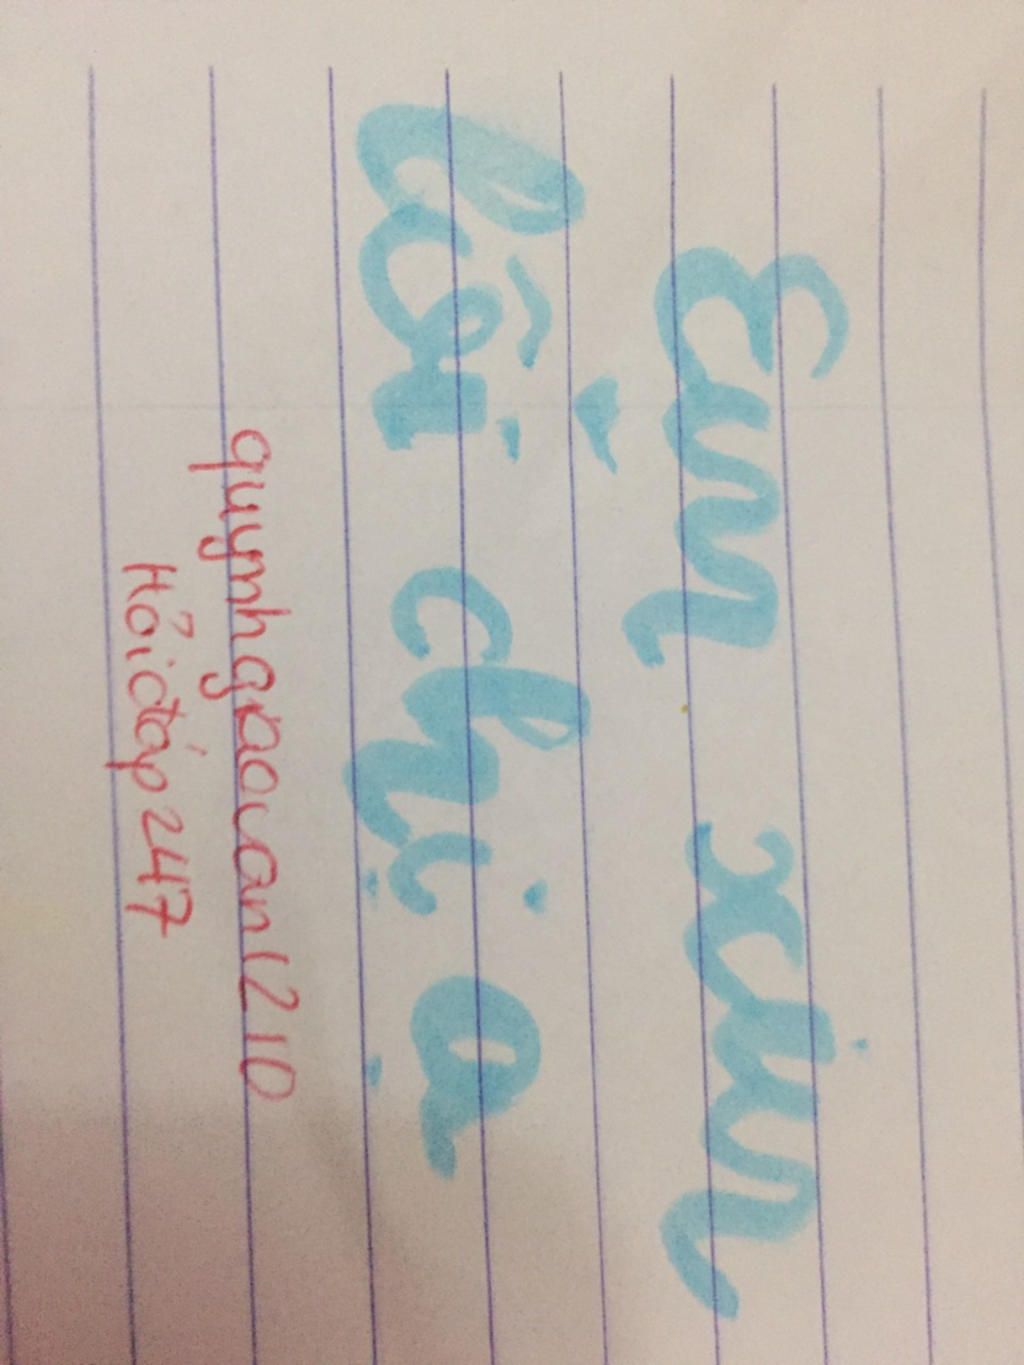 Em xin
lỗi chị ạ
quynhgiaovan1210
Hỏiđáp247